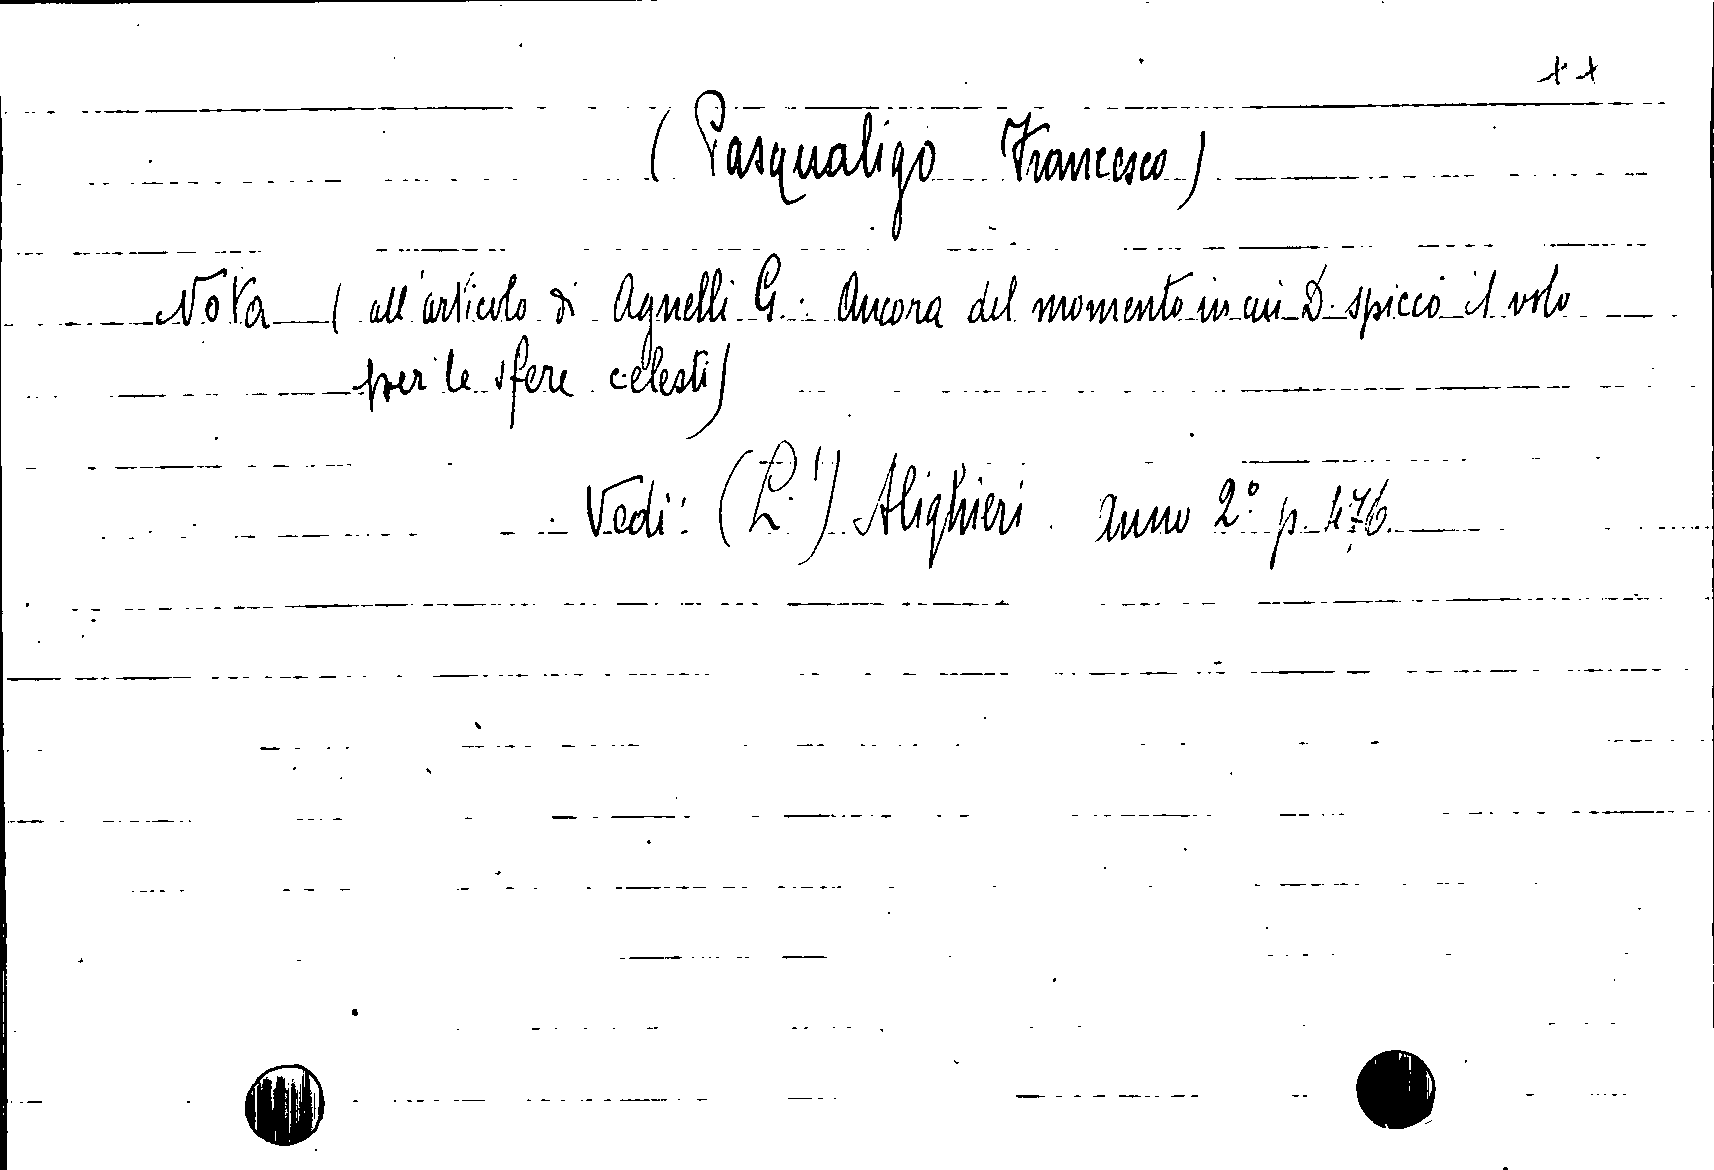 ++
(Pasqualigo Francesco)
Nota (all'articolo di Agnelli G.: Ancora del momento in cui D. spiccò il volo
per le sfere celesti)
Vedi: (L') Alighieri. Anno 2° p. 476.